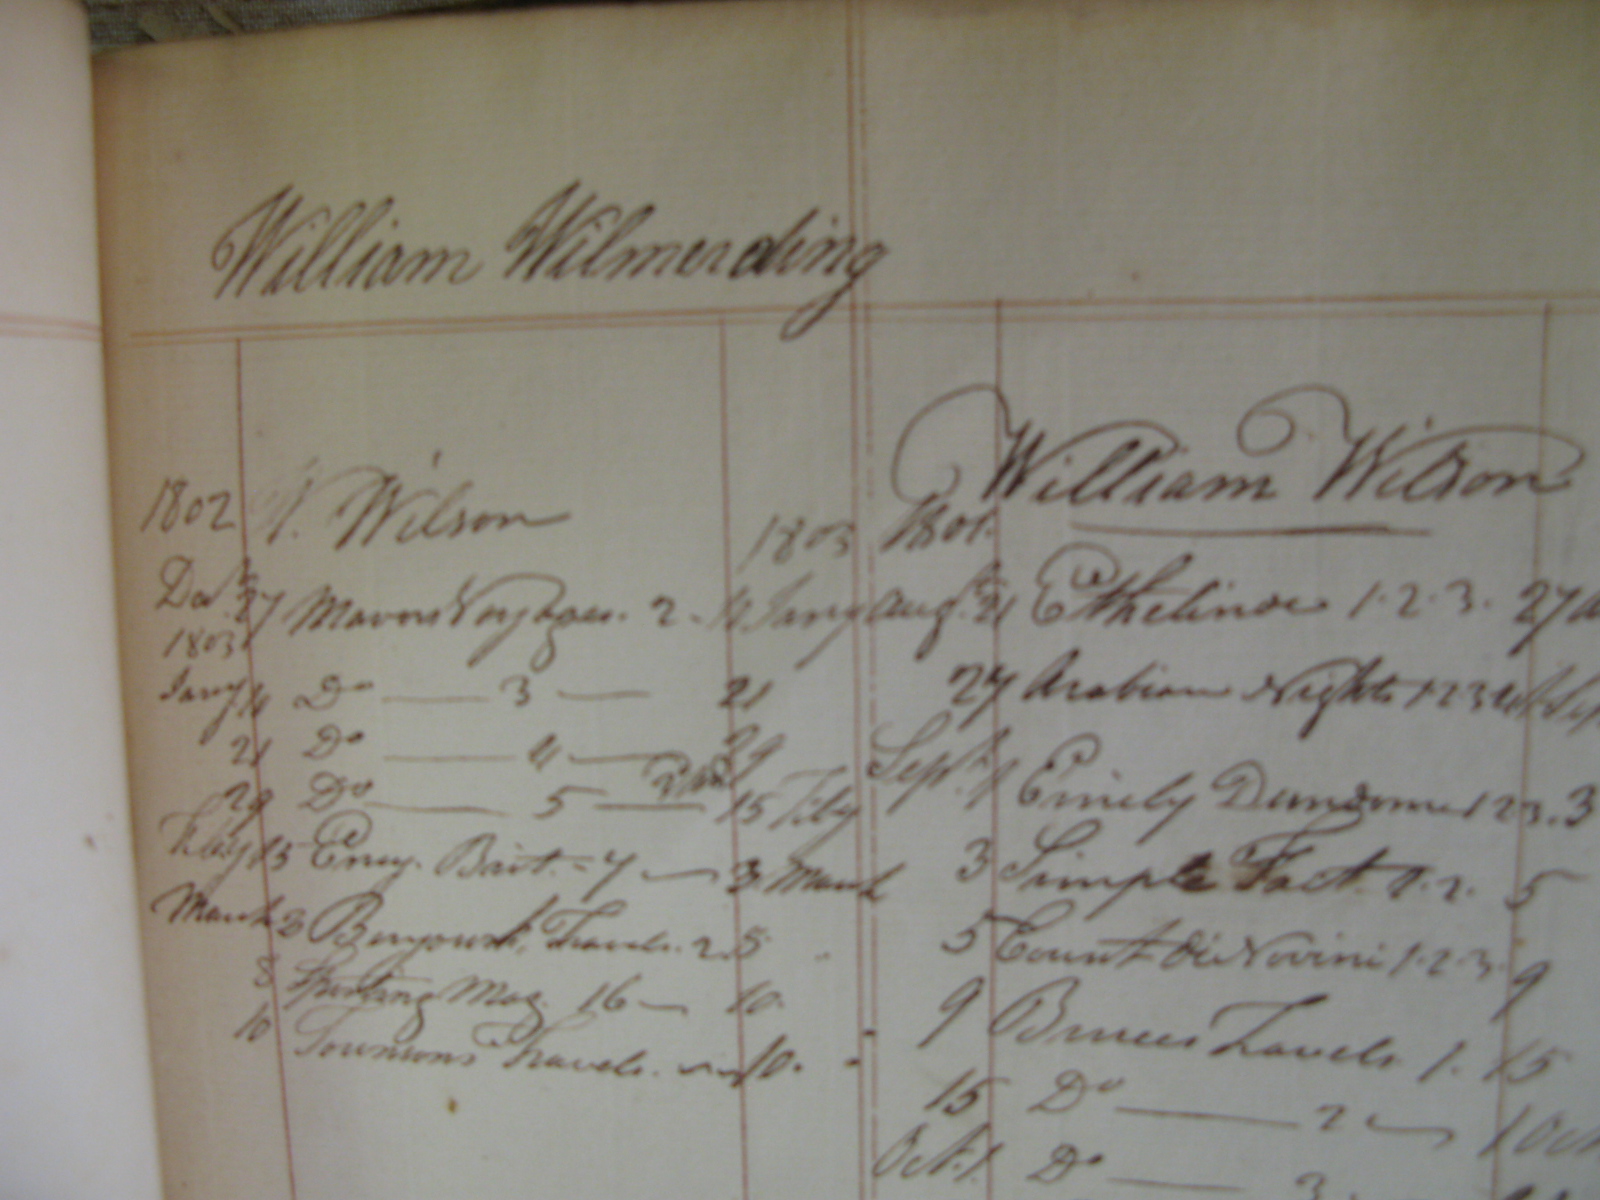 William Wilmerding
W. Wilson
1802 1803
Decr. 27 Mavors Voyages. 2 - 4 Jany
1803
Jany 4 Do —— 3 —— 21
21 Do —— 4 —— 29
29 Do —— 5 —— 15 Feby
Feby 15 Ency. Brit. - 7 — 3 March
March 3 Travels. 2. 5
8 Sporting Mag. 16 — 10.
10 Travels. 10.
William Wilson
1801.
Augt. 21 Ethelinde 1. 2. 3. 27
27 Arabian Nights 1 2 3 4
Sept. 1 Emily 1 2 3. 3
3 Simple Fact. 1. 2. 5
5 Count di Novini 1. 2. 3. 9
9 Bruces Travels 1. 15
15 Do —— 2 — 1 Oct
Oct. 1 Do —— 3